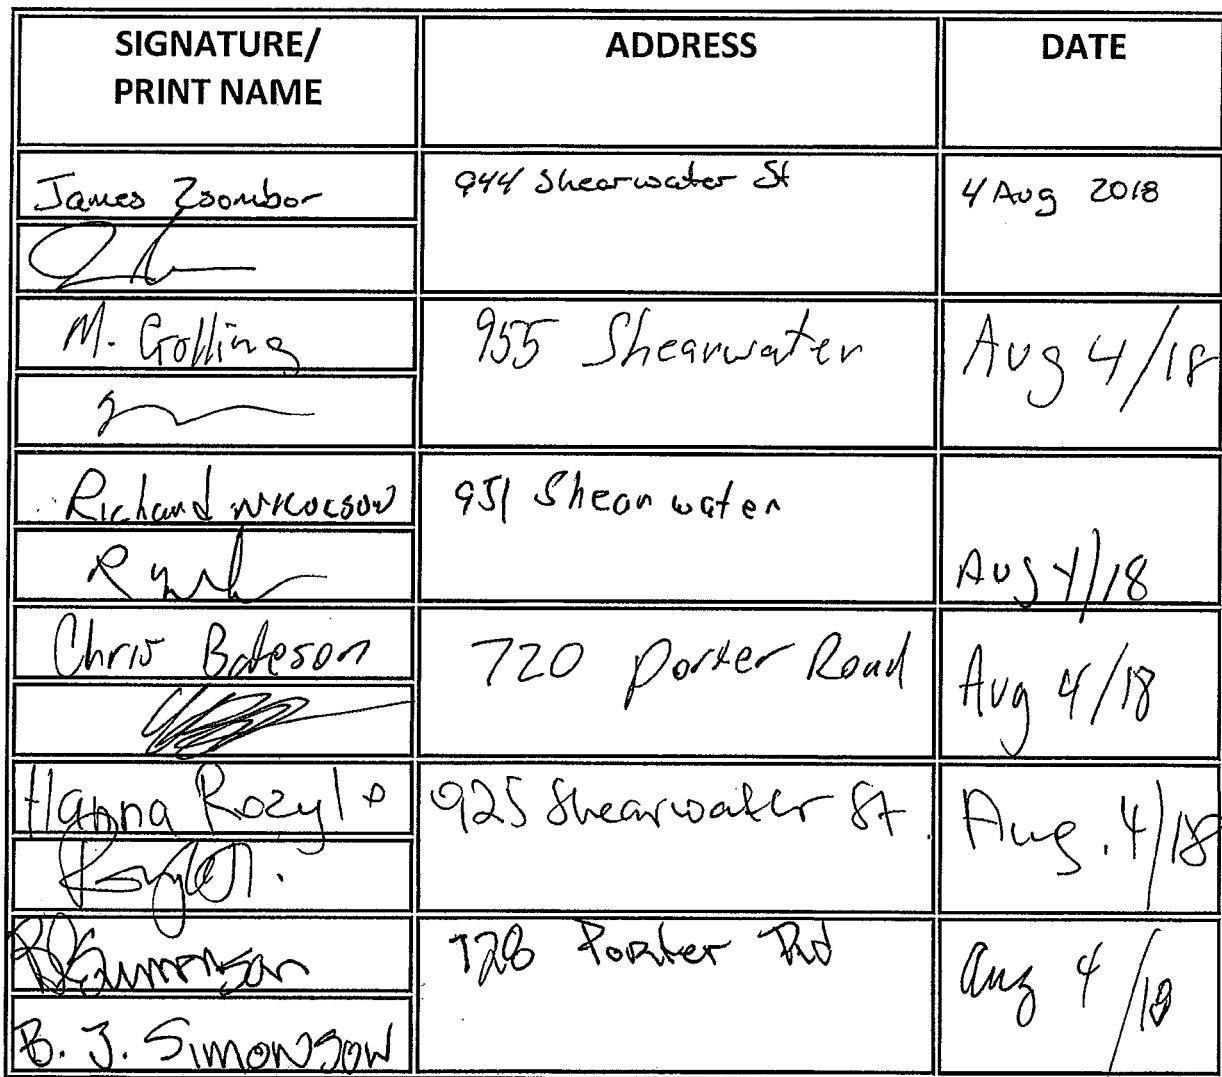 SIGNATURE/
PRINT NAME
ADDRESS
DATE
James Zsombor
944 Shearwater St
4 Aug 2018
M. Golling
955 Shearwater
Aug 4/18
Richard
951 Shearwater
Aug 4/18
Chris Bateson
720 Porter Road
Aug 4/18
Hanna Rozylo
925 Shearwater St.
Aug. 4/18
Simonson
728 Porter Rd
Aug 4/18
B. J. SIMONSON